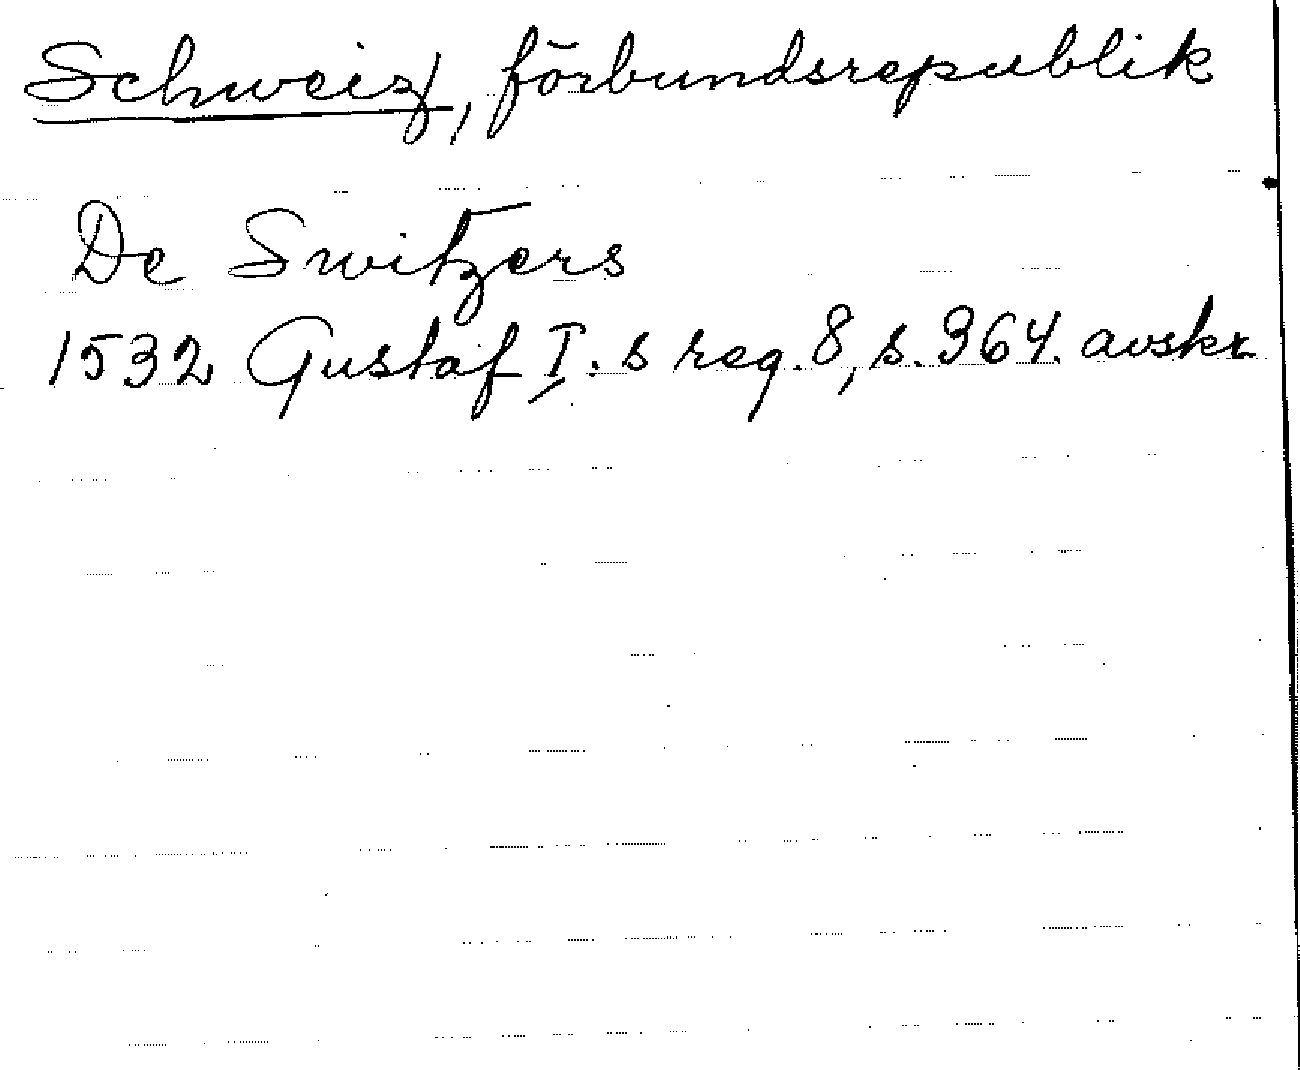 Schweiz, förbundsrepublik
De Switzers
1532 Gustaf I. s reg. 8, s. 364. avskr